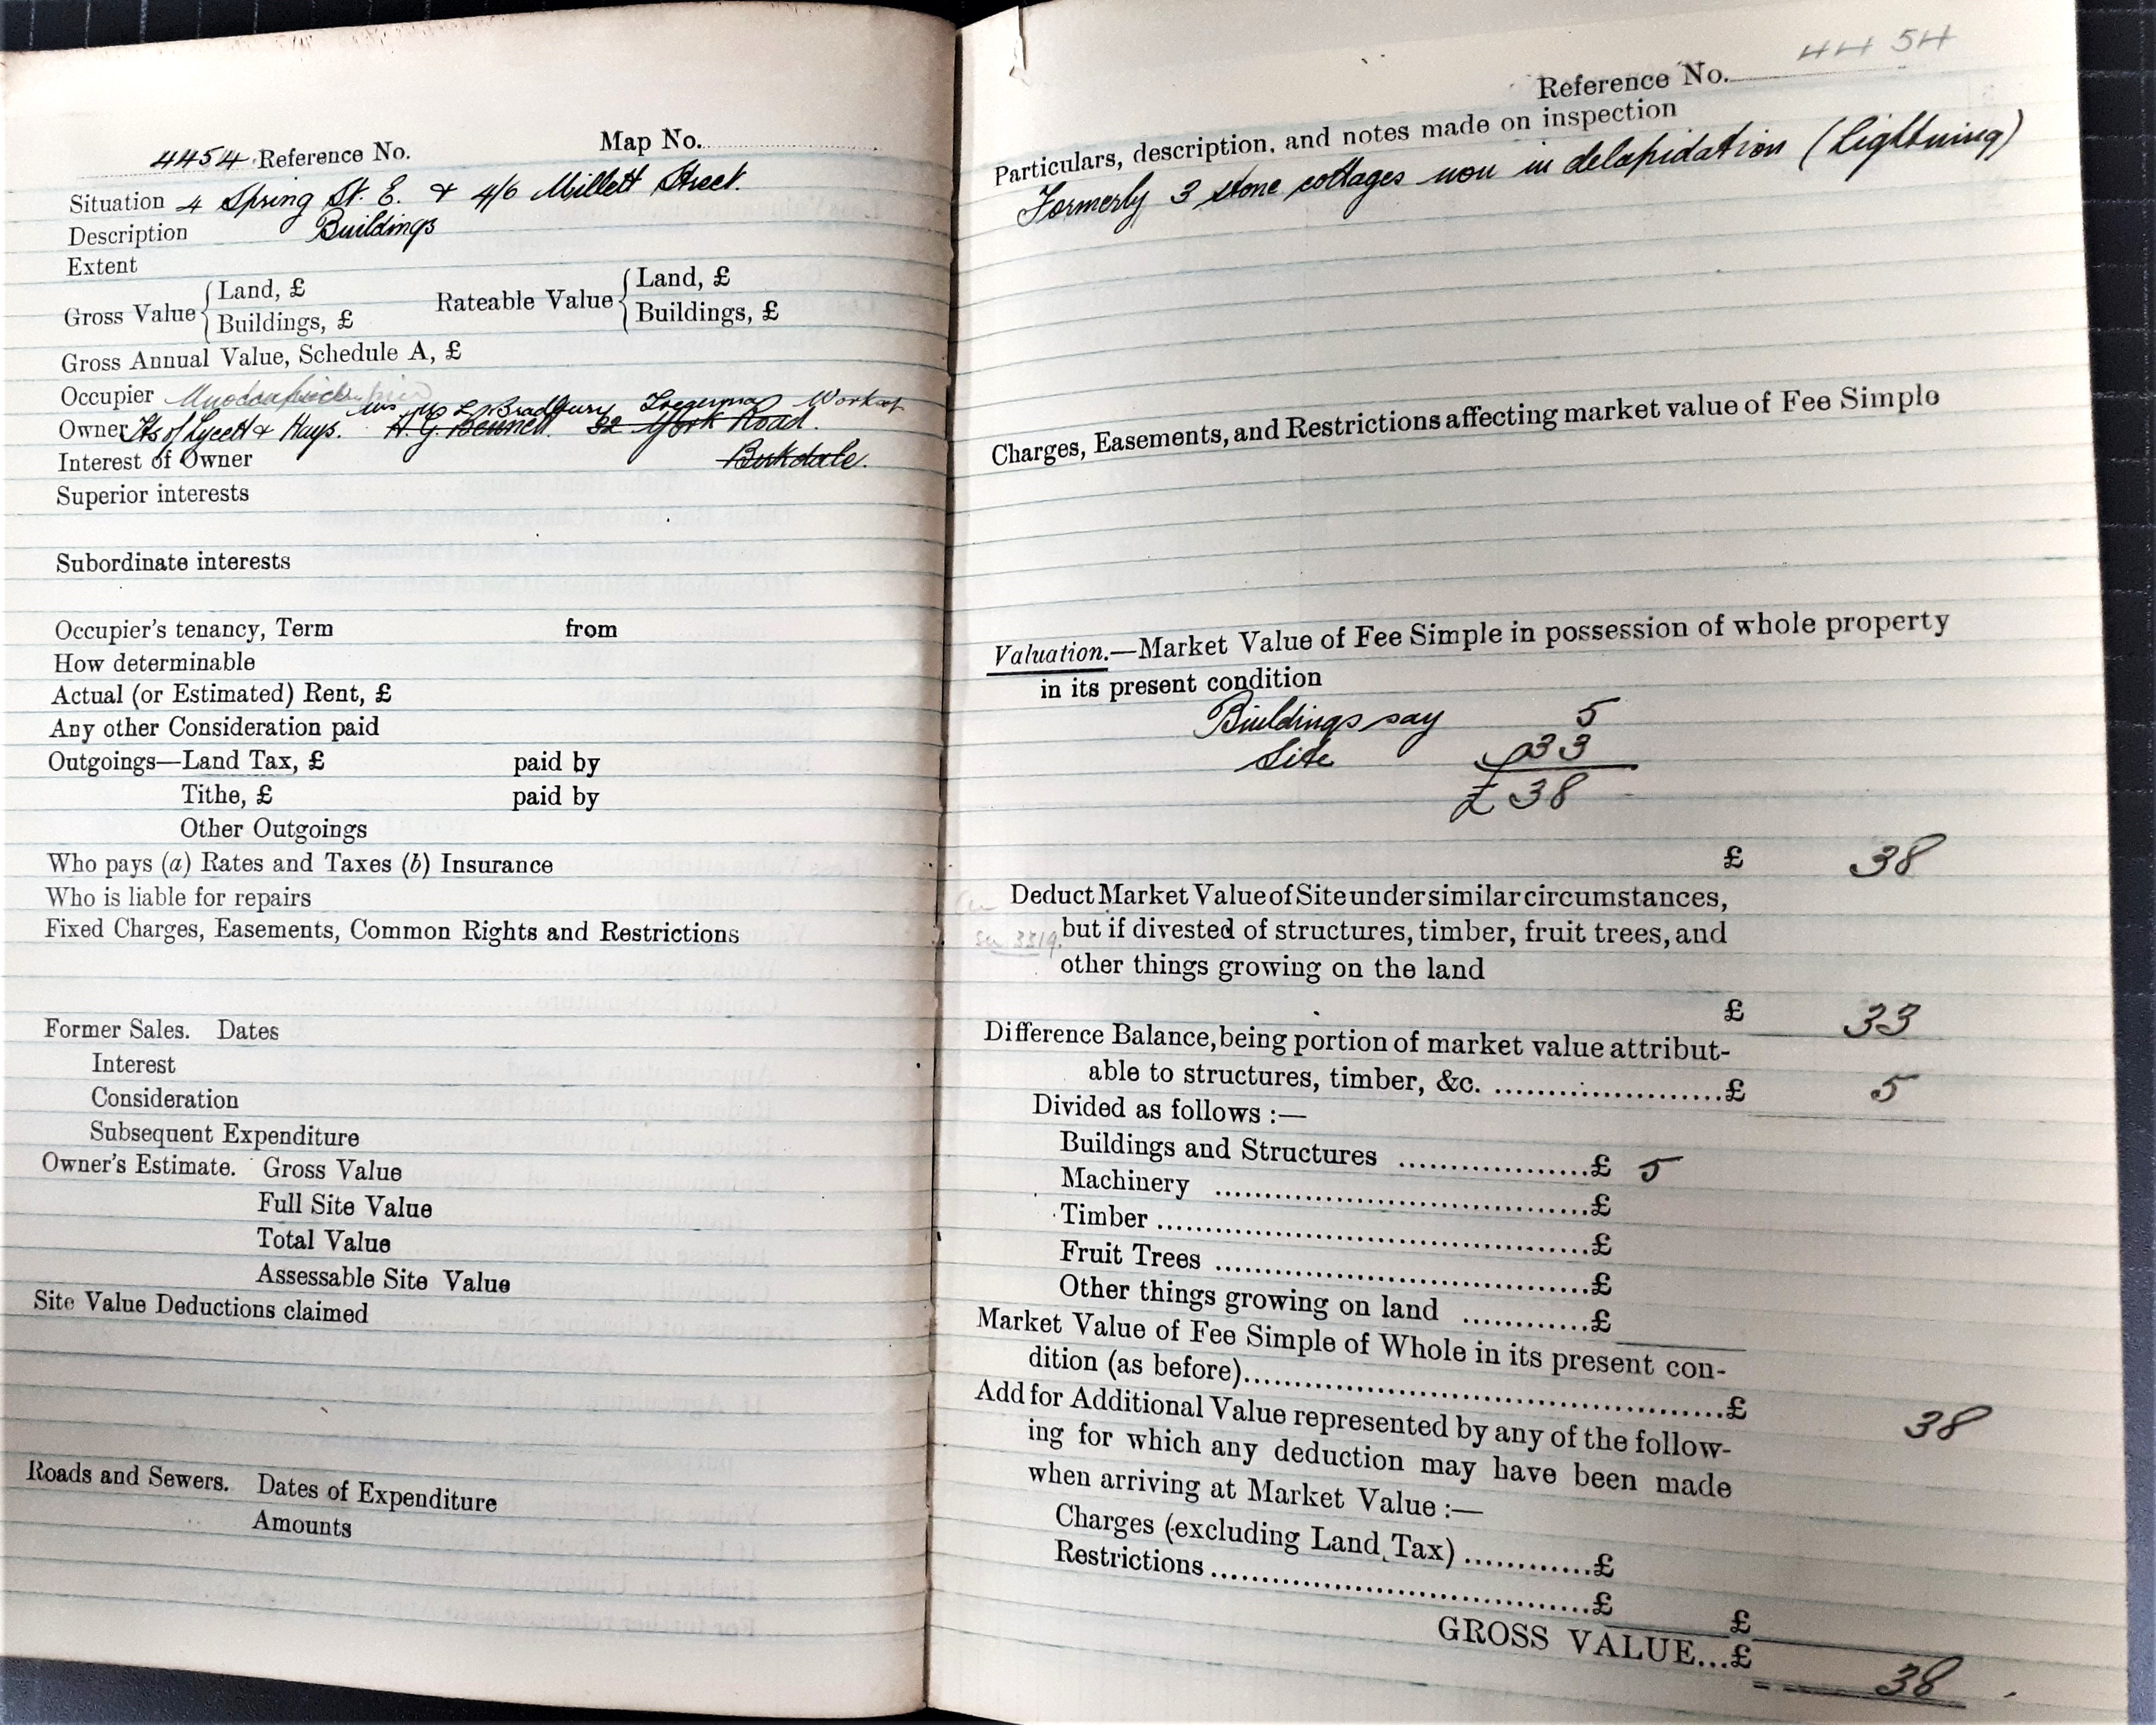 4454 Reference No. Map No.
Situation 4 Spring St. E. & 4/6 Millett Street.
Description Buildings
Extent
Gross Value { Land, £ Rateable Value { Land, £
Buildings, £ Buildings, £
Gross Annual Value, Schedule A, £
Occupier
L. Bradbury
Owner of Lycett & Hays. H. G. Bennett. 32 York Road.
Interest of Owner Birkdale.
Superior interests
Subordinate interests
Occupier's tenancy, Term from
How determinable
Actual (or Estimated) Rent, £
Any other Consideration paid
Outgoings—Land Tax, £ paid by
Tithe, £ paid by
Other Outgoings
Who pays (a) Rates and Taxes (b) Insurance
Who is liable for repairs
Fixed Charges, Easements, Common Rights and Restrictions
Former Sales. Dates
Interest
Consideration
Subsequent Expenditure
Owner's Estimate. Gross Value
Full Site Value
Total Value
Assessable Site Value
Site Value Deductions claimed
Roads and Sewers. Dates of Expenditure
Amounts
Reference No. 4454
Particulars, description, and notes made on inspection
Formerly 3 stone cottages now in delapidation (Lightning)
Charges, Easements, and Restrictions affecting market value of Fee Simple
Valuation.—Market Value of Fee Simple in possession of whole property
in its present condition
Buildings say 5
Site 33
£ 38
£ 38
Deduct Market Value of Site under similar circumstances,
but if divested of structures, timber, fruit trees, and
3319.
other things growing on the land
£ 33
Difference Balance, being portion of market value attribut-
able to structures, timber, &c. ........................£ 5
Divided as follows :—
Buildings and Structures ..................£ 5
Machinery ..................£
Timber ..................£
Fruit Trees ..................£
Other things growing on land ............£
Market Value of Fee Simple of Whole in its present con-
dition (as before)..................£ 38
Add for Additional Value represented by any of the follow-
ing for which any deduction may have been made
when arriving at Market Value :—
Charges (excluding Land Tax) ............£
Restrictions ..................£
£
GROSS VALUE...£ 38